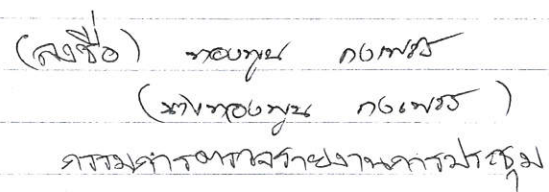 (ลงชื่อ) ทองพูน กงเพชร
(นางทองพูน กงเพชร)
กรรมการตรวจรายงานการประชุม